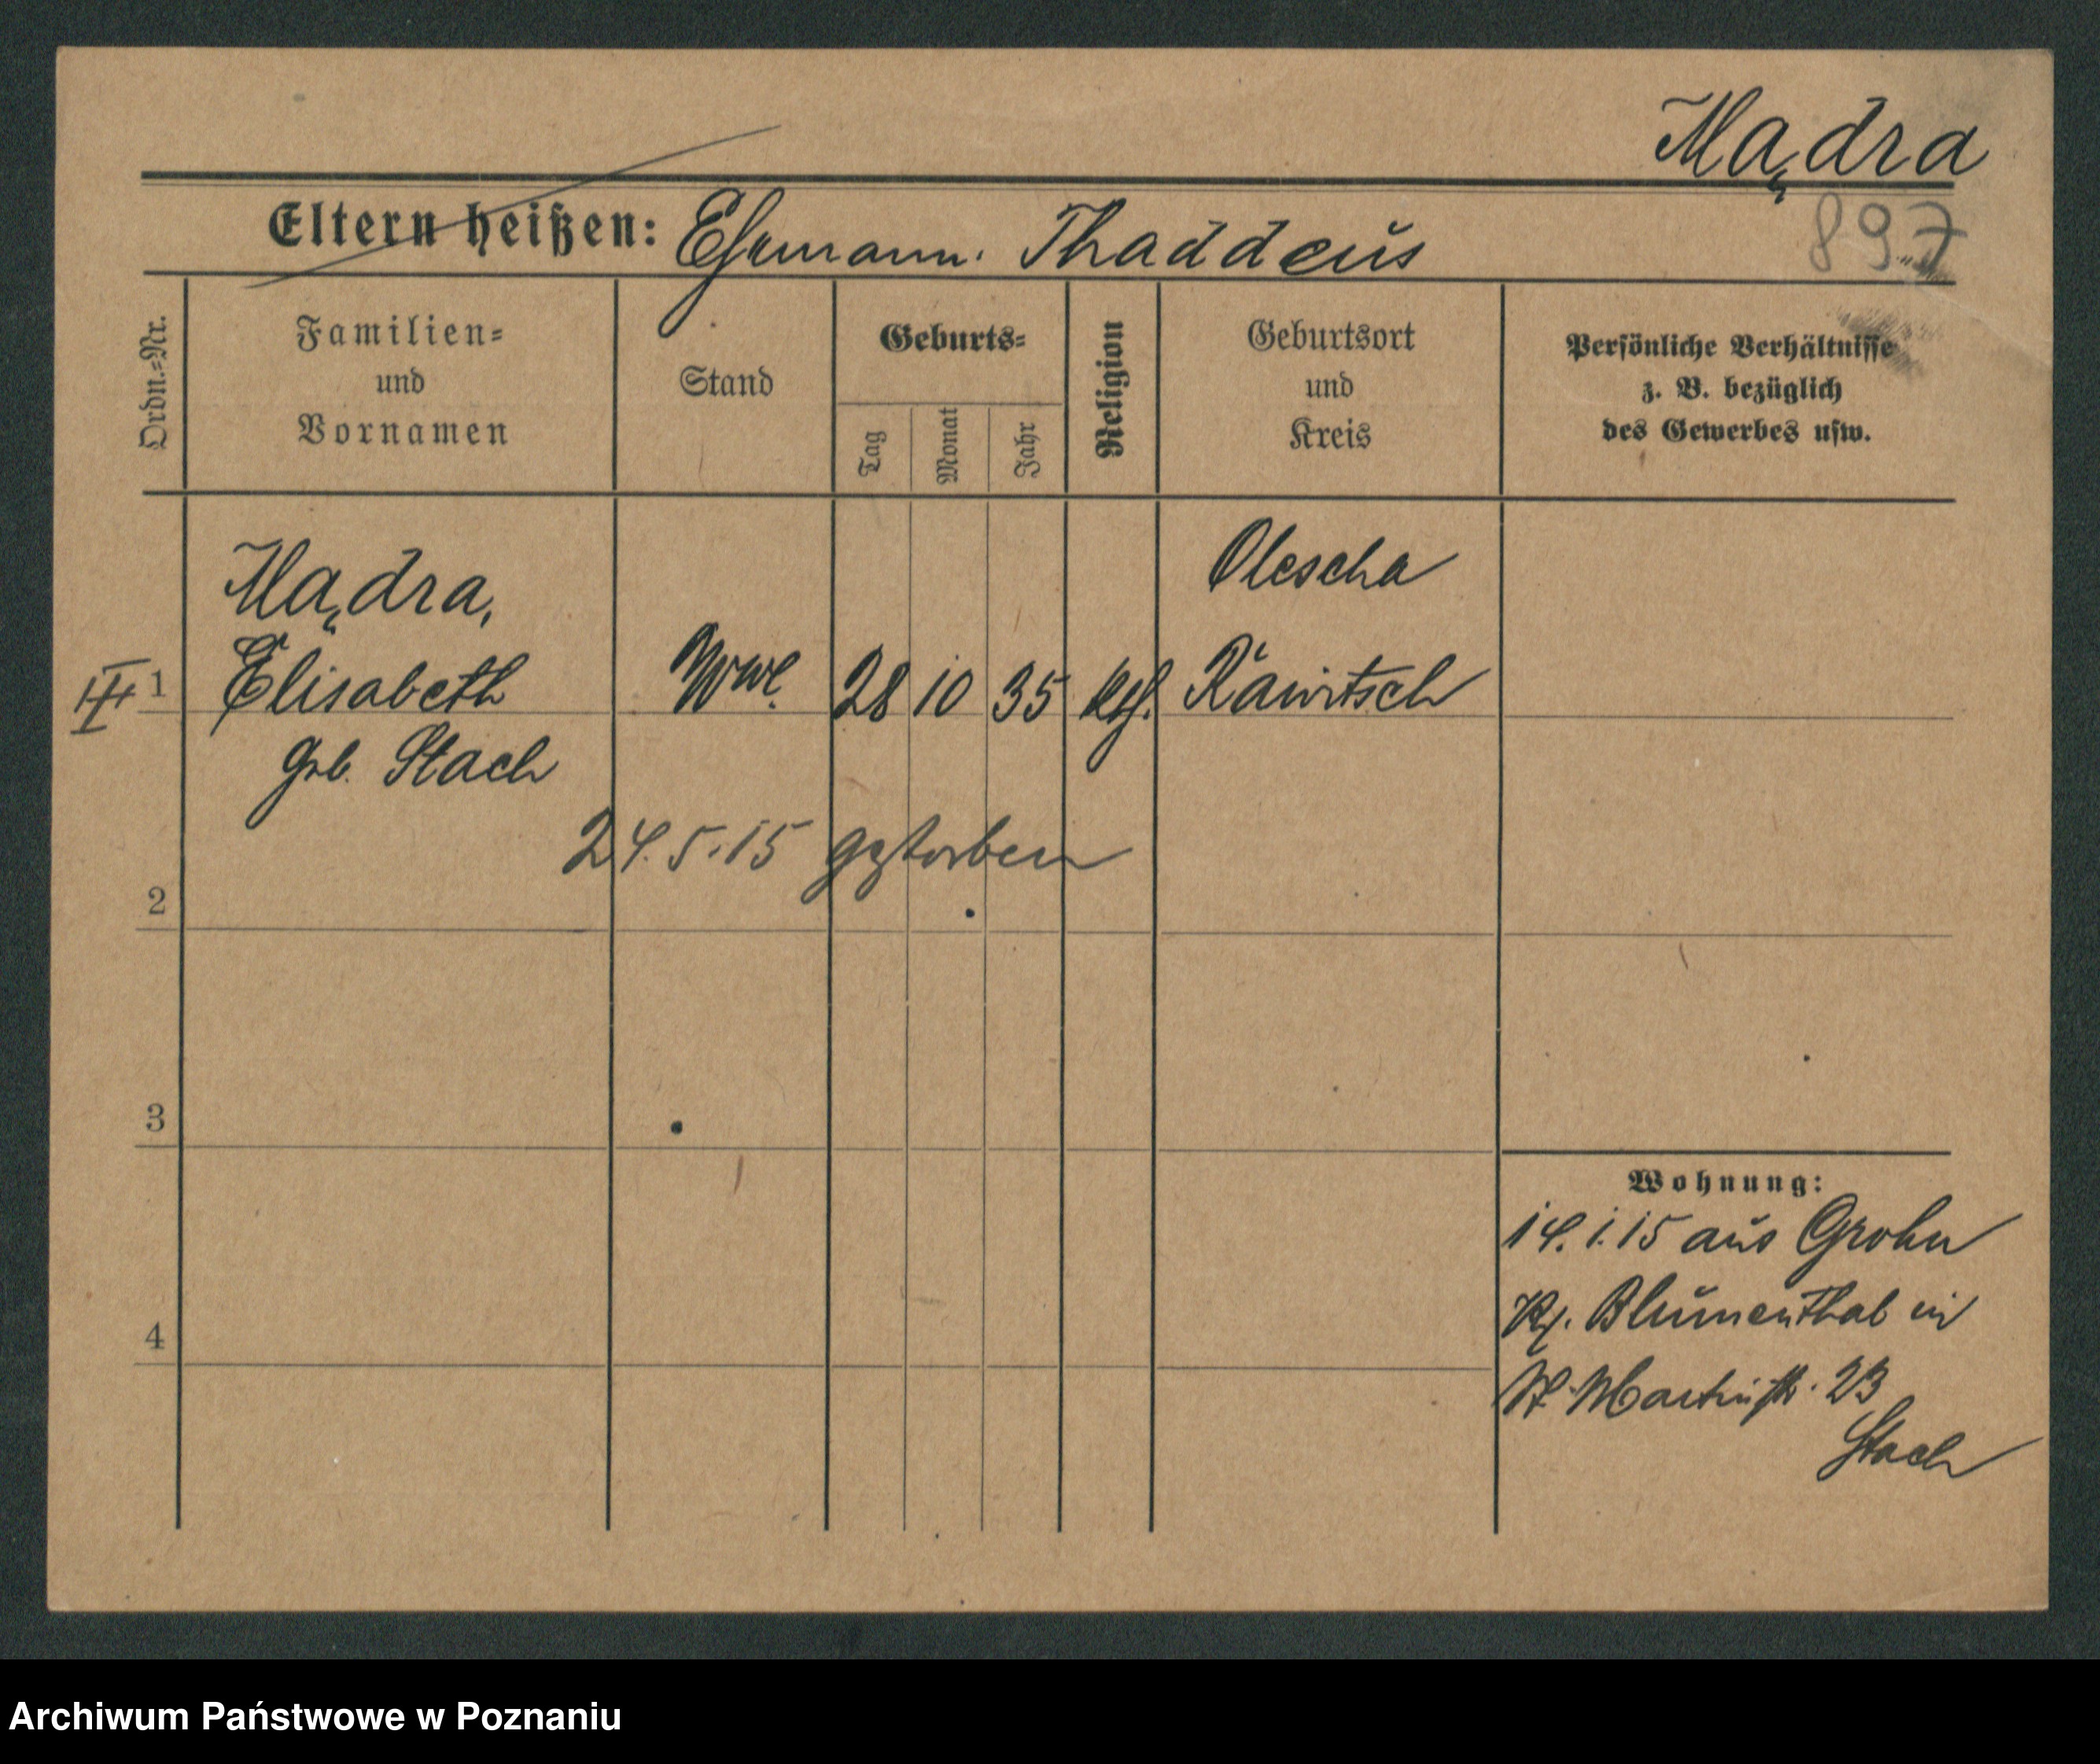 Mądra
897
Eltern heißen: Ehemann. Thaddeus
Ordn.-Nr.
Familien-
und
Vornamen
Stand
Geburts-
Tag
Monat
Jahr
Religion
Geburtsort
und
Kreis
Persönliche Verhältnisse
z. B. bezüglich
des Gewerbes usw.
Mądra,
Olescha
III 1 Elisabeth Wwe. 28 10 35 kth. Rawitsch
geb. Stach
24.5.15 gestorben
2
3
4
Wohnung:
14.1.15 aus Grohn
Kr. Blumenthal in
St. Martinstr. 23
Stach
Archiwum Państwowe w Poznaniu